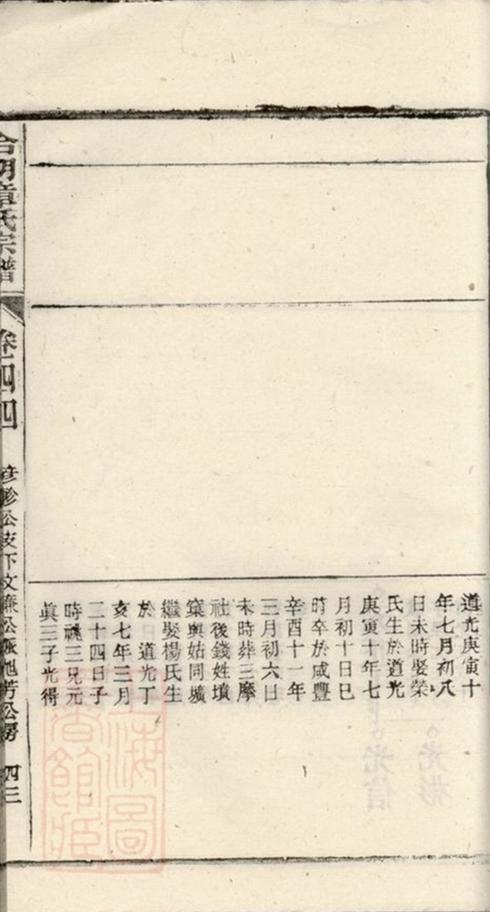 道光庚寅十
年七月初八
日未時娶榮
氏生於道光
庚寅十年七
月初十日巳
時卒於咸豐
辛酉十一年
三月初六日
未時葬三摩
社後錢姓墳
窠與姑同壙
繼娶楊氏生
於 道光丁
亥七年三月
二十四日子
時 三兄元
眞三子光得
章氏宗譜
卷二四四
公支下文 公 公房
四三
光彩
光信
上海圖書館藏